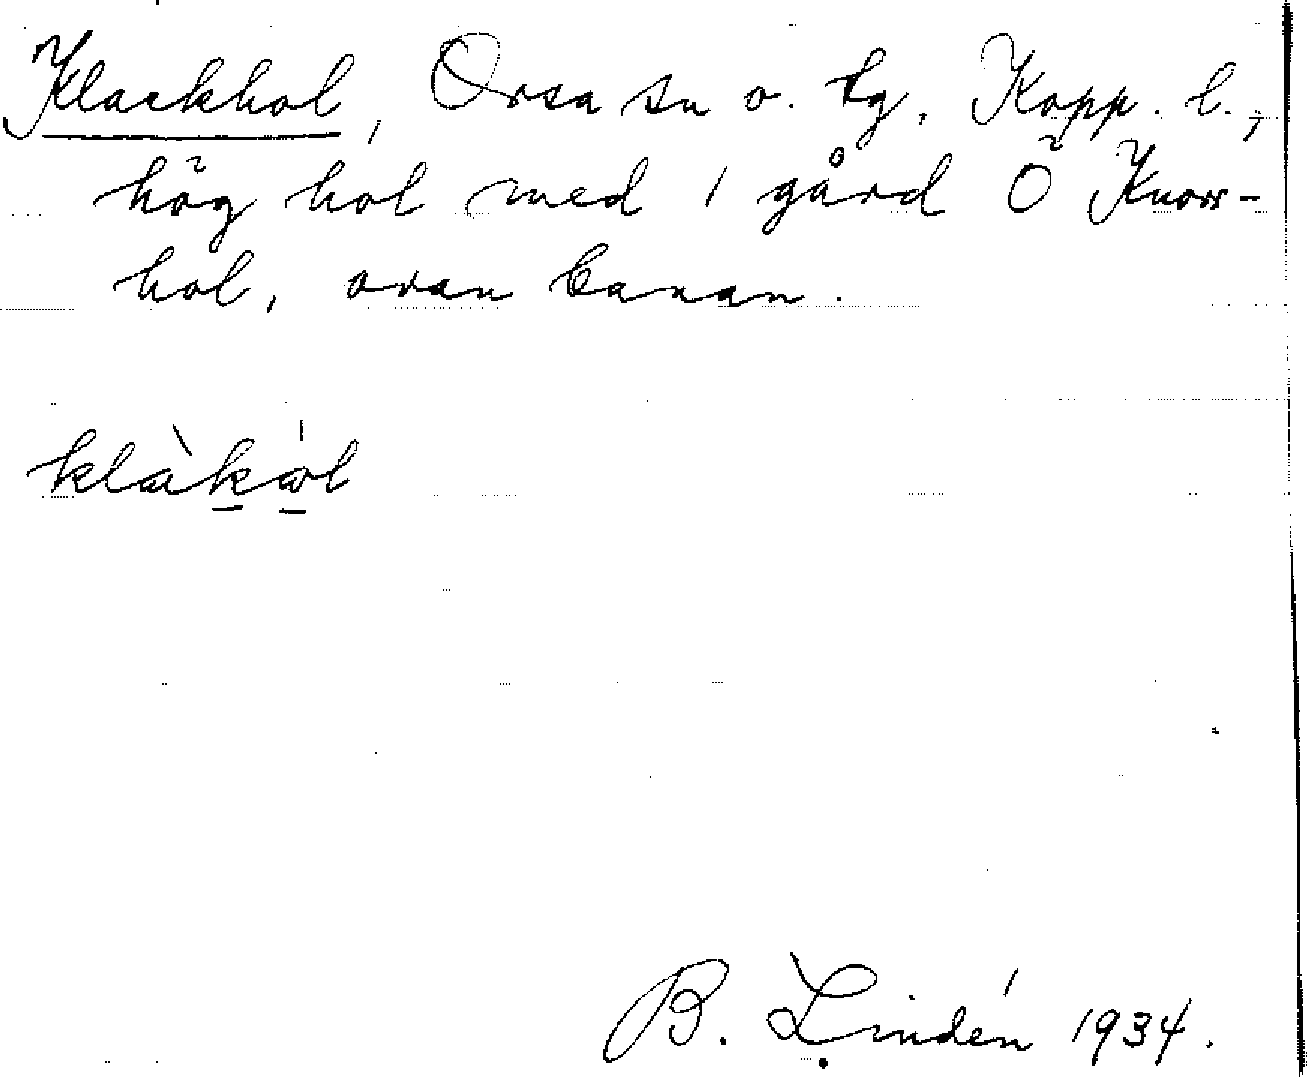 Klackhol, Orsa sn o. tg, Kopp. l.,
hög hol med 1 gård Ö Knorr-
hol, ovan banan.
klàkɒ̀l
B. Lindén 1934.